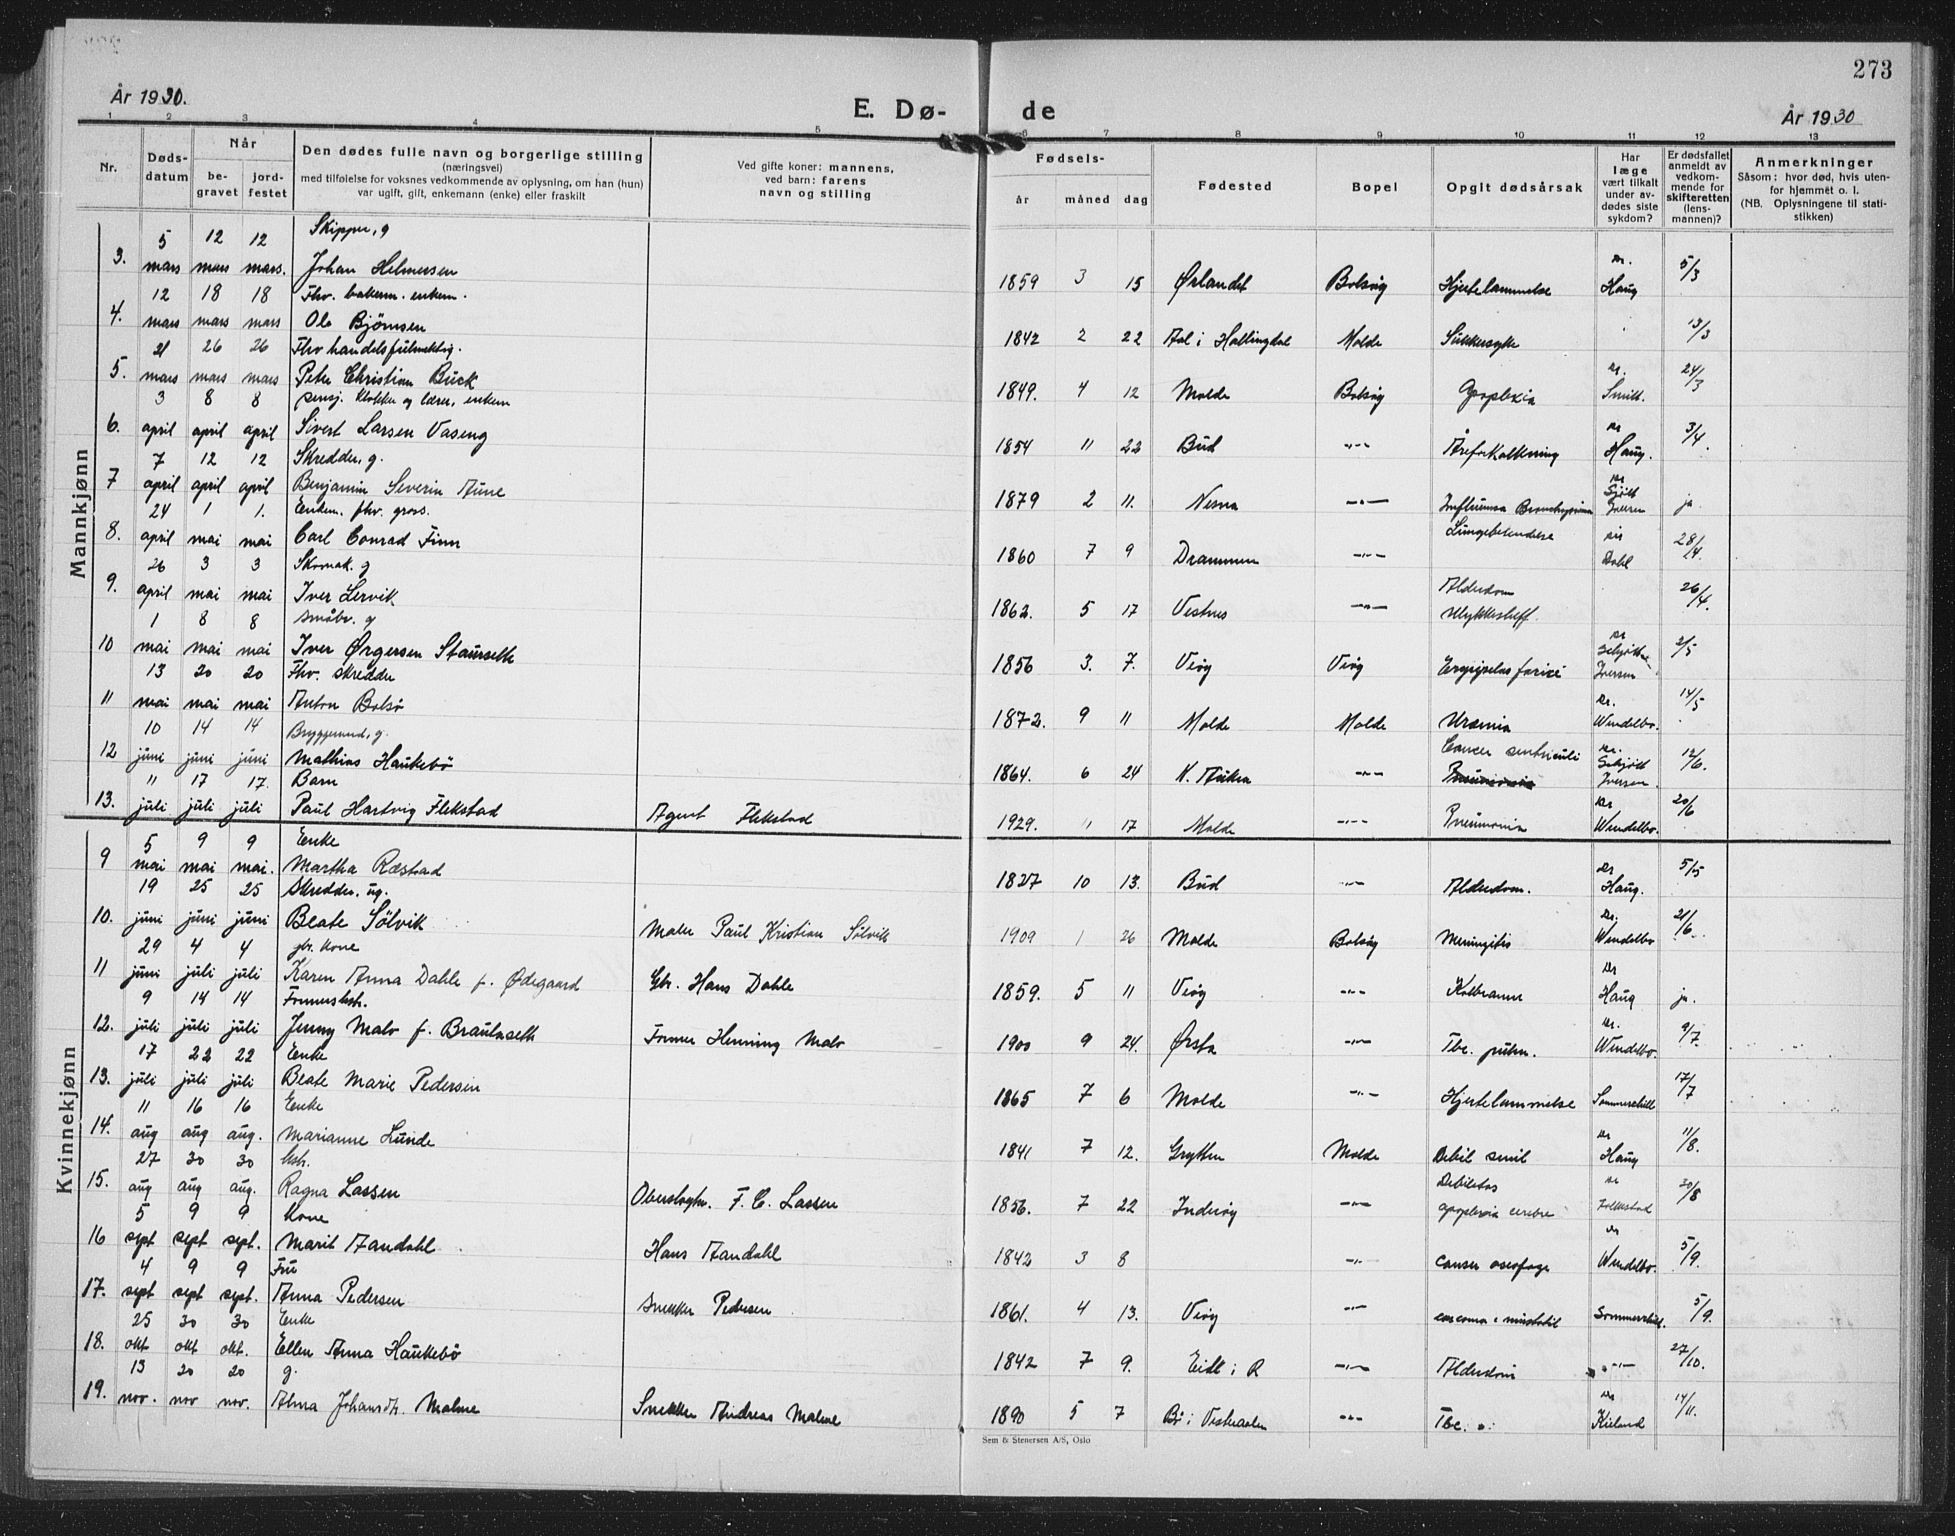 273
År 1930.
E. Dø-
de
År 1930
1 2 3 4 5 6 7 8 9 10 11 12 13
Nr.
Døds-
datum
Når
be-
gravet
jord-
festet
Den dødes fulle navn og borgerlige stilling
(næringsvei)
med tilføielse for voksnes vedkommende av oplysning, om han (hun)
var ugift, gift, enkemann (enke) eller fraskilt
Ved gifte koner: mannens,
ved barn: farens
navn og stilling
Fødsels-
år måned dag
Fødested
Bopel
Opgit dødsårsak
Har
læge
vært tilkalt
under av-
dødes siste
sykdom?
Er dødsfallet
anmeldt av
vedkom-
mende for
skifteretten
(lens-
mannen)?
Anmerkninger
Såsom: hvor død, hvis uten-
for hjemmet o. l.
(NB. Oplysningene til stati-
stikken)
Mannkjønn
5 12 12 Skipper, g
3. mars mars mars. Johan Helmersen 1859 3 15 Ørlandet Bolsøy Hjertelammelse Dr. Haug 5/3
12 18 18 Fhv. bakerm. enkem.
4. mars mars mars Ole Bjørnsen 1842 2 22 Aal i Hallingdal Molde Sukkersyke 13/3
21 26 26 Fhv handelsfullmektig.
5. mars mars mars Peter Christian Buck 1849. 4 12 Molde Bolsøy Apoplexia Dr. Smitt. 24/3
3 8 8 pensj. klokker og lærer, enkem
6. april april april Sivert Larsen Vaseng 1854 11 22 Bud -"- Åreforkalkning Dr Haug. 3/4
7 12 12 Skredder, g.
7 april april april Benjamin Severin Aune 1879 2 11. Nesna -"- Influensa Dr Iversen ja
24 1 1. Enkem. fhv. gross. Lungebetendelse
8. april mai mai Carl Conrad Finn 1860 7 9 Drammen -"- Dahl 28/4.
26 3 3 Skomak. g Alderdom
9. april mai mai Iver Lervik 1862. 5 17 Vestnes -"- Ulykkestilf. 26/4.
1 8 8 småbr. g
10 mai mai mai Iver Ørgersen Staurseth 1856 3. 7. Veøy Veøy Erysipelas Dr Iversen 2/5
13 20 20 Fhv. skredder
11 mai mai mai Anton Bolsø 1872. 9 11 Molde Molde Uræmia Dr. Wendelbo. 14/5
10 14 14 Cancer ventriculi
12 juni juni juni Mathias Haukebø 1864. 6 24 N. Aukra -"- Pneumonia Dr. Iversen. 12/6.
11 17 17. Barn
13. juli juli juli Paul Hartvig Flekstad Agent Flekstad 1929. 11 17 Molde -"- Pneumonia Dr Wendelbo. 20/6
Kvinnekjønn
5 9 9 Enke
9 mai mai mai. Martha Ræstad 1827 10 13. Bud -"- Alderdom. Dr Haug. 5/5
19 25 25 Skredder, ug.
10. juni juni juni Beate Sølvik Maler Paul Kristian Sølvik 1909 1 26 Molde Bolsøy Meningitis Dr. Wendelbo 21/6.
29 4 4 gbr. kone
11 juni juli juli Karen Anna Dahle f. Ødegaard Gbr. Hans Dahle 1859. 5 11 Veøy -"- Koldbrann Dr Haug ja.
9 14 14 Formershstr.
12. juli juli juli Jenny Malo f. Brautaseth Former Henning Malo 1900 9 24. Ørsta -"- Tbc. pulm. Dr. Wendelbo. 9/7.
17 22 22 Enke
13. juli juli juli Beate Marie Pedersen 1865 7 6 Molde -"- Hjertelammelse Sommerschild 17/7
11 16 16 Enke
14. aug aug aug. Marianne Lunde 1841 7 12. Grytten Molde Debil senil Dr Haug 11/8.
27 30 30 hstr. Debilitas
15. aug aug aug. Ragna Lassen Oberstløytn. F. C. Lassen 1856. 7 22 Inderøy -"- apoplexia cerebri Dr Folkestad 30/8
5 9 9 Kone
16 sept sept sept. Marit Aandahl Hans Aandahl 1842 3 8 -"- Cancer oesofage Dr Wendelbo. 5/9.
4 9 9 Fru
17. sept sept sept. Anna Pedersen Snekker Pedersen 1861. 4 13. Veøy -"- Sommerschild. 5/9.
25 30 30 Enke
18. okt okt okt. Ellen Anna Haukebø 1842 7 9. Eidt i R -"- Alderdom -"- 27/10.
13 20 20 g.
19. nov. nov nov. Alma Johansdt. Malme Snekker Andreas Malme 1890 5 7 Bø i Vesteraalen -"- Tbc. Dr Kieland 14/11.
Sem & Stenersen A/S, Oslo